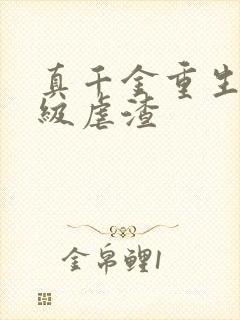 真千金重生
级虐渣
金帛鲤1